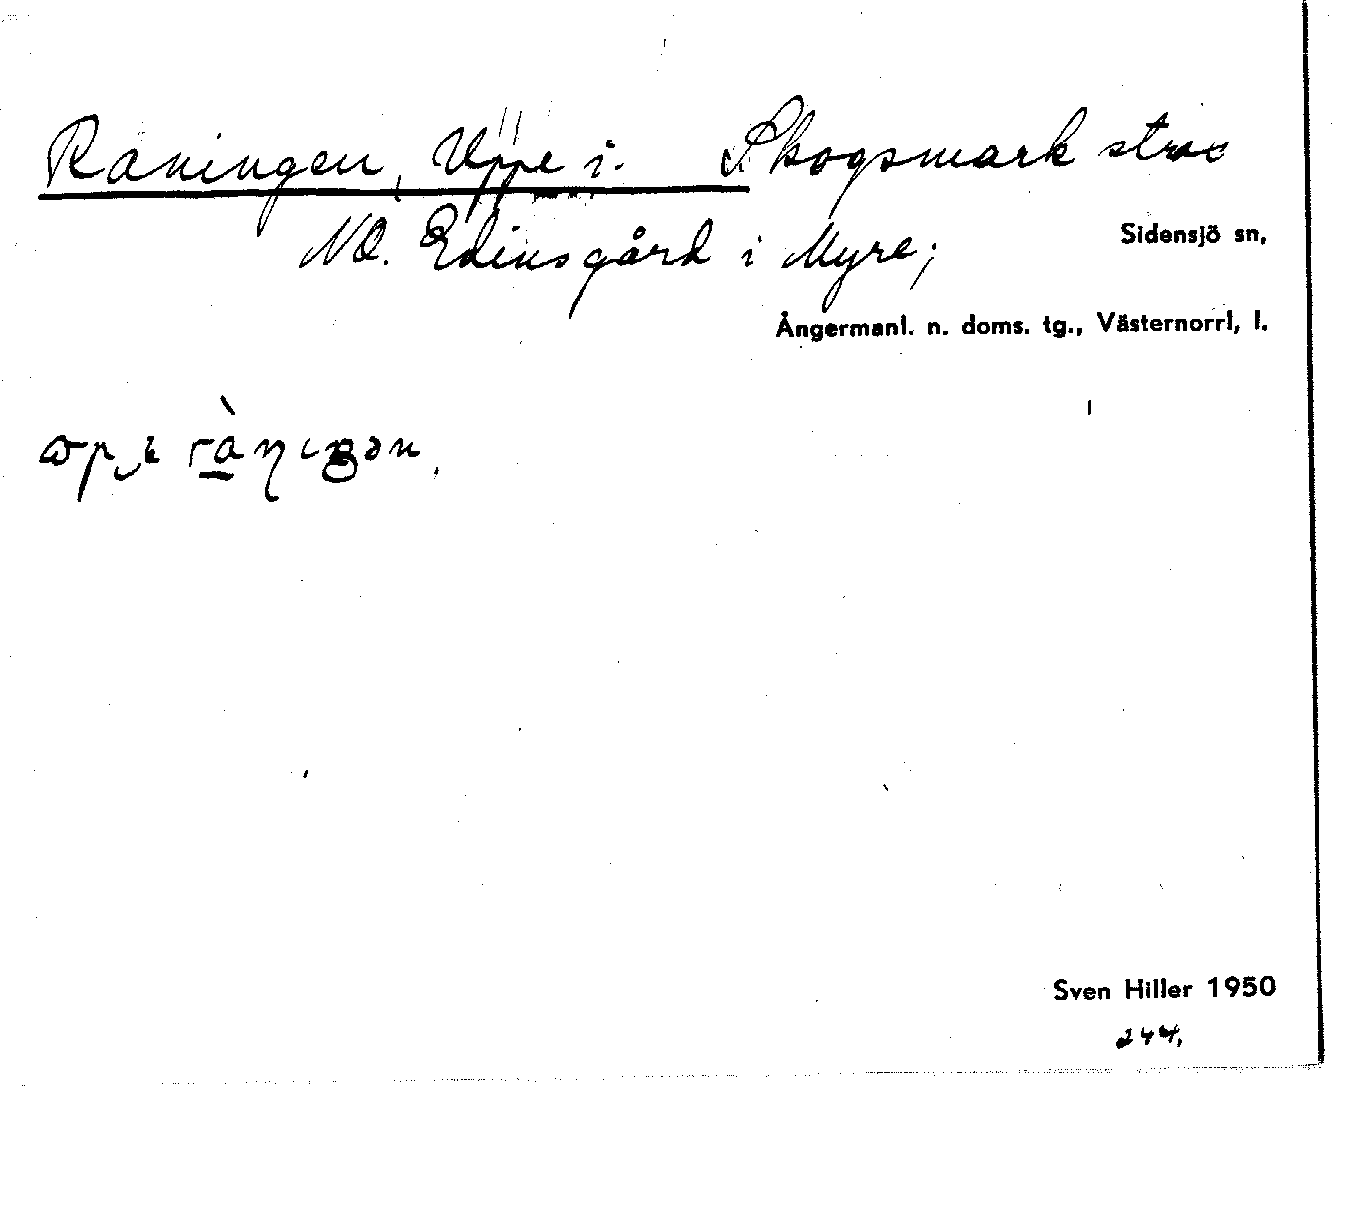 Råningen, Uppe i. Skogsmark strax
NO. Edinsgård i Myre;
Sidensjö sn,
Ångermanl. n. doms. tg., Västernorrl, l.
Sven Hiller 1950
244.